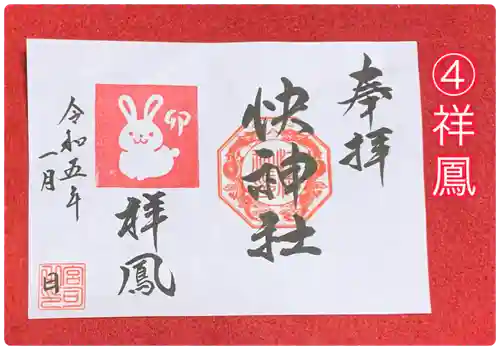 ④祥鳳
奉拝
快神社
卯
祥鳳
令和五年
一月
日